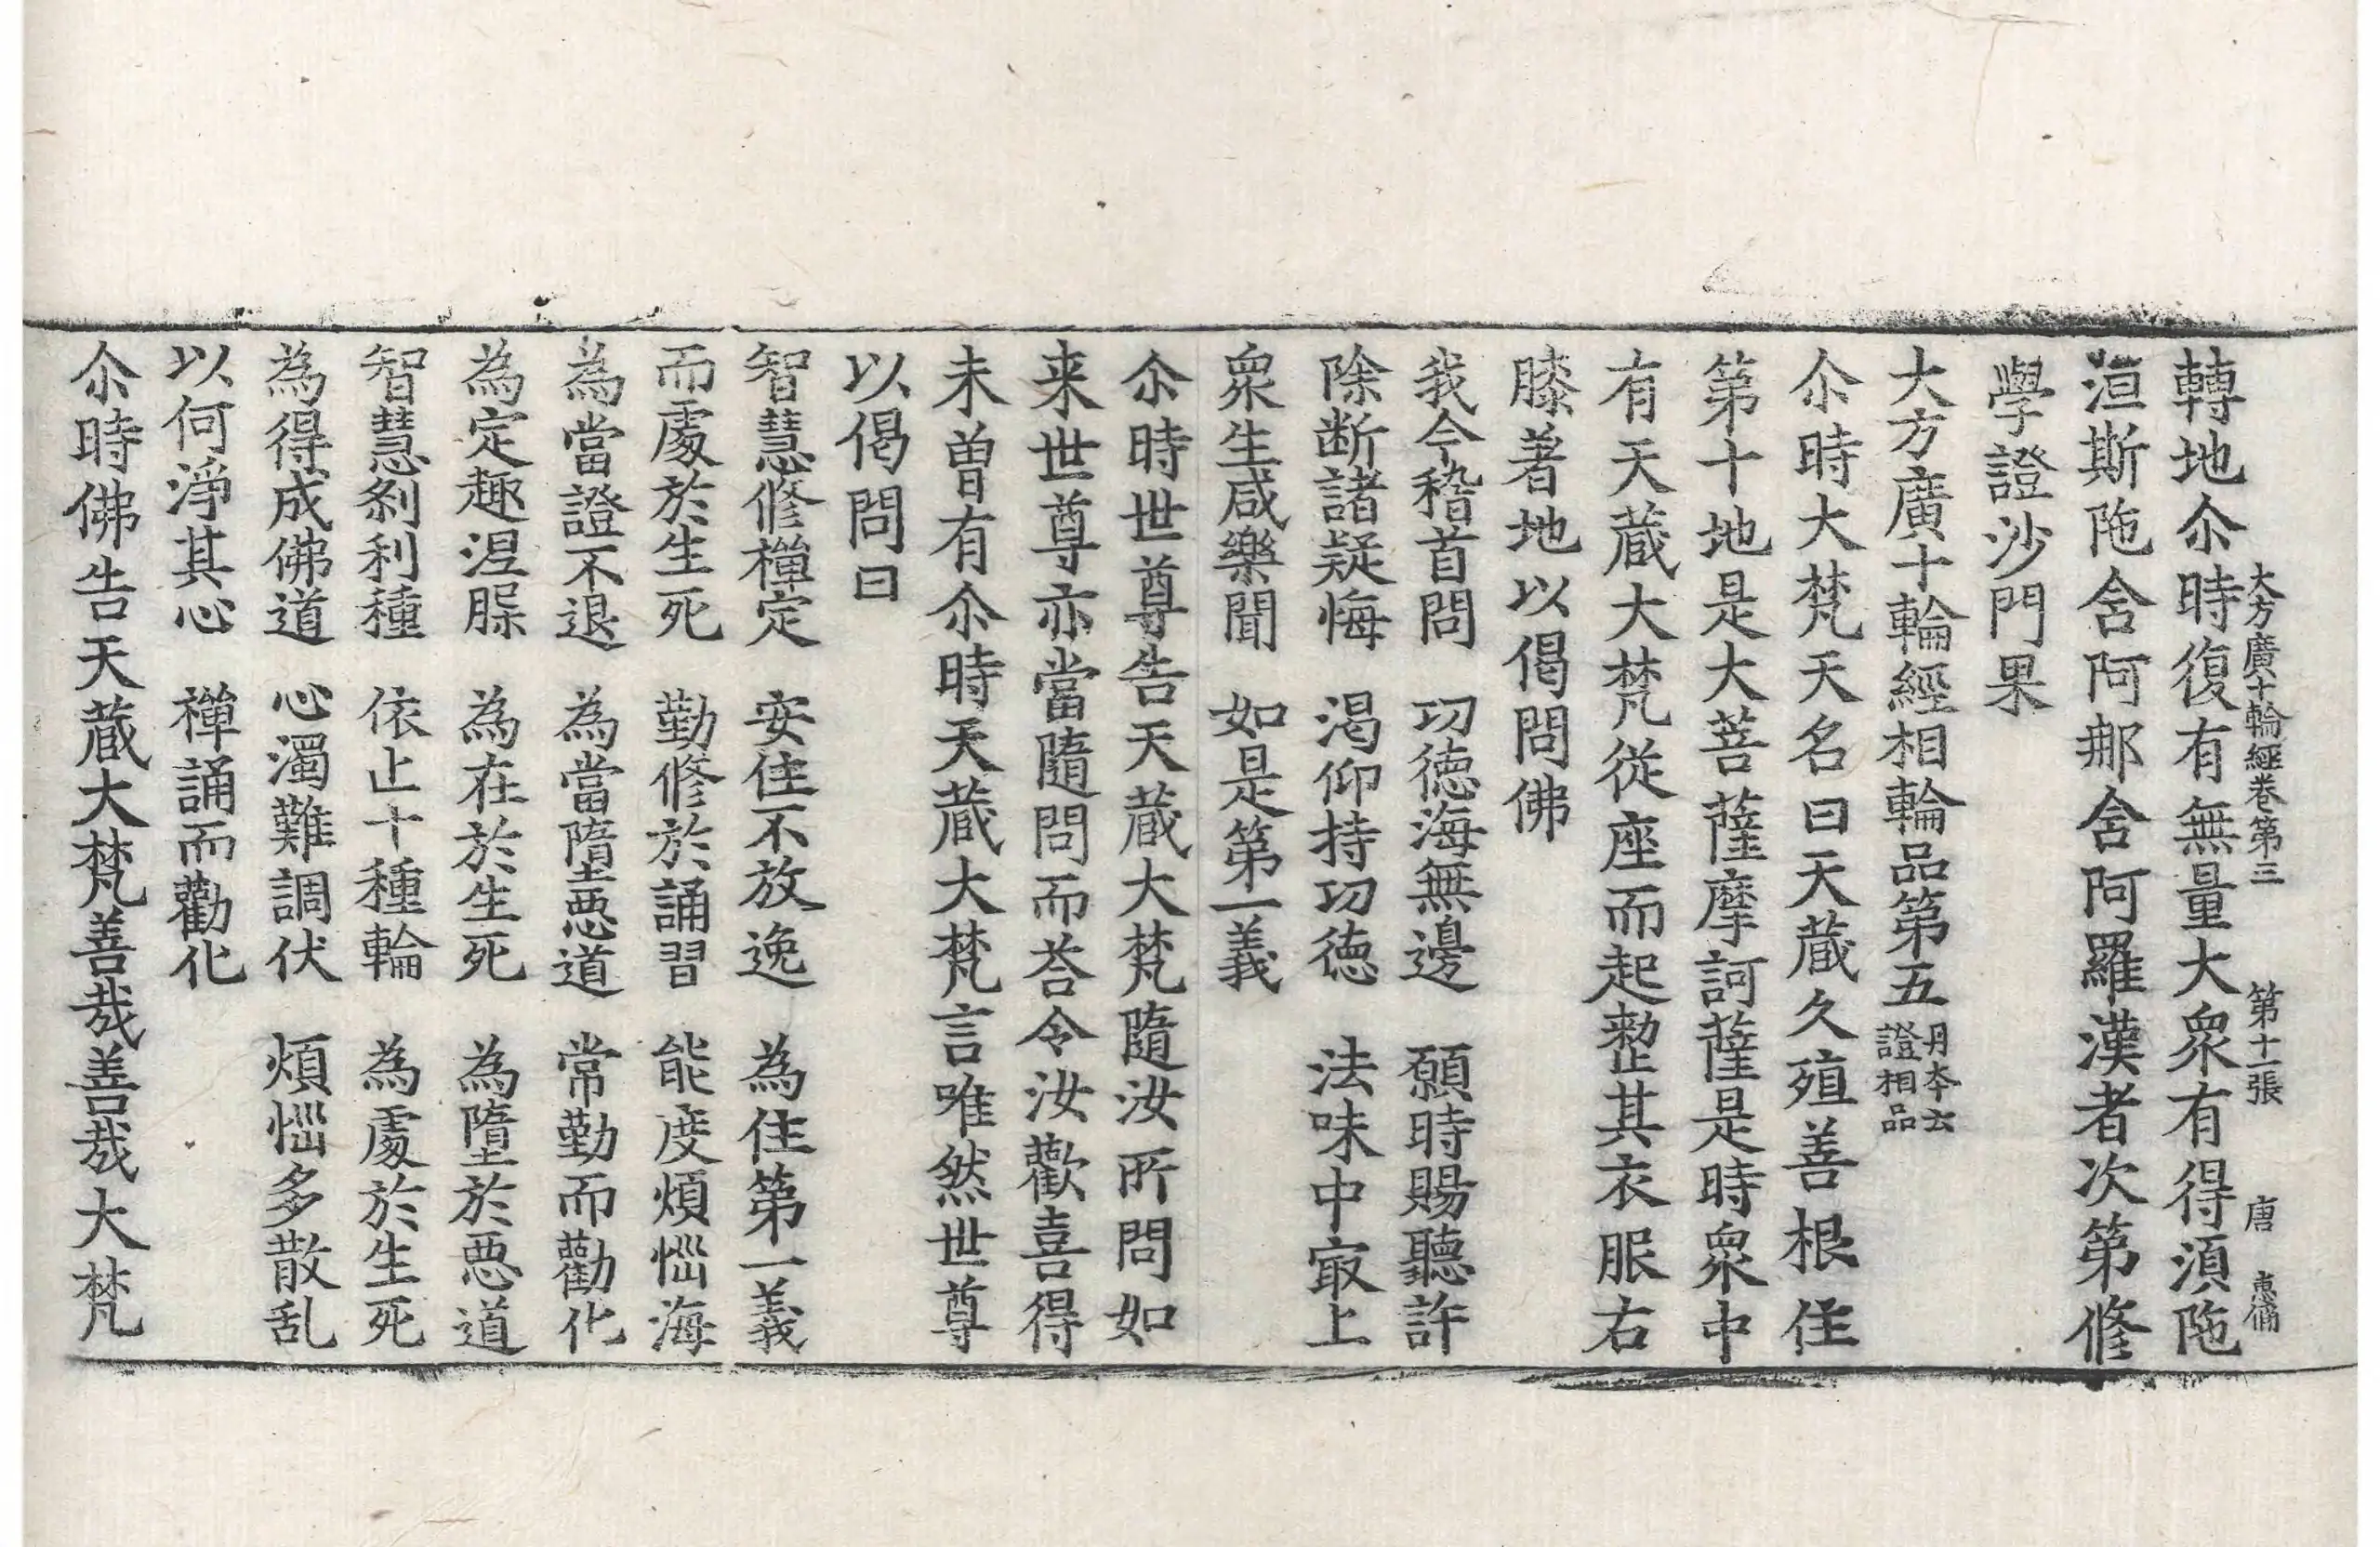 大方廣十輪經卷第三 第十一張 唐 惠備
轉地尒時復有無量大衆有得湏陁
洹斯陁含阿那含阿羅漢者次第修
學證沙門果
大方廣十輪經相輪品第五 丹本云證相品
尒時大梵天名曰天蔵久殖善根住
第十地是大菩薩摩訶薩是時衆中
有天蔵大梵從座而起整其衣服右
膝著地以偈問佛
我今稽首問 功徳海無邊 願時賜聽許
除断諸疑悔 渇仰持功徳 法味中㝡上
衆生咸樂聞 如是第一義
尒時世尊告天蔵大梵隨汝所問如
来世尊亦當隨問而荅令汝歡喜得
未曽有尒時天蔵大梵言唯然世尊
以偈問曰
智慧修禪定 安住不放逸 為住第一義
而處於生死 勤修於誦習 能度煩惱海
為當證不退 為當墮惡道 常勤而勸化
為定趣涅槃 為在於生死 為墮於惡道
智慧剎利種 依止十種輪 為處於生死
為得成佛道 心濁難調伏 煩惱多散乱
以何淨其心 禪誦而勸化
尒時佛告天蔵大梵善哉善哉大梵